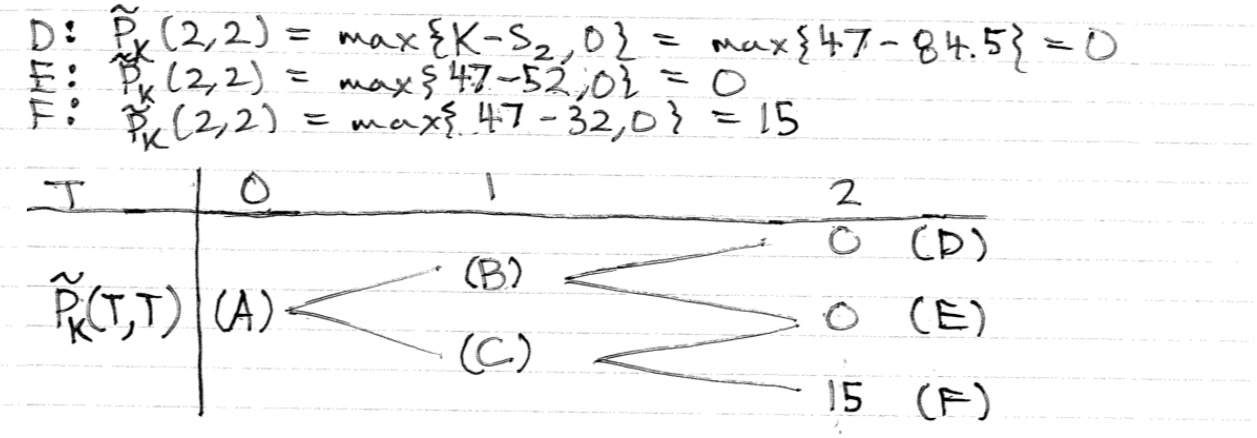 D: P̃_K(2,2) = max{K-S_2,0} = max{47-84.5} = 0
E: P̃_K(2,2) = max{47-52,0} = 0
F: P̃_K(2,2) = max{47-32,0} = 15
T 0 1 2
0 (D)
(B)
P̃_K(T,T) (A) 0 (E)
(C)
15 (F)